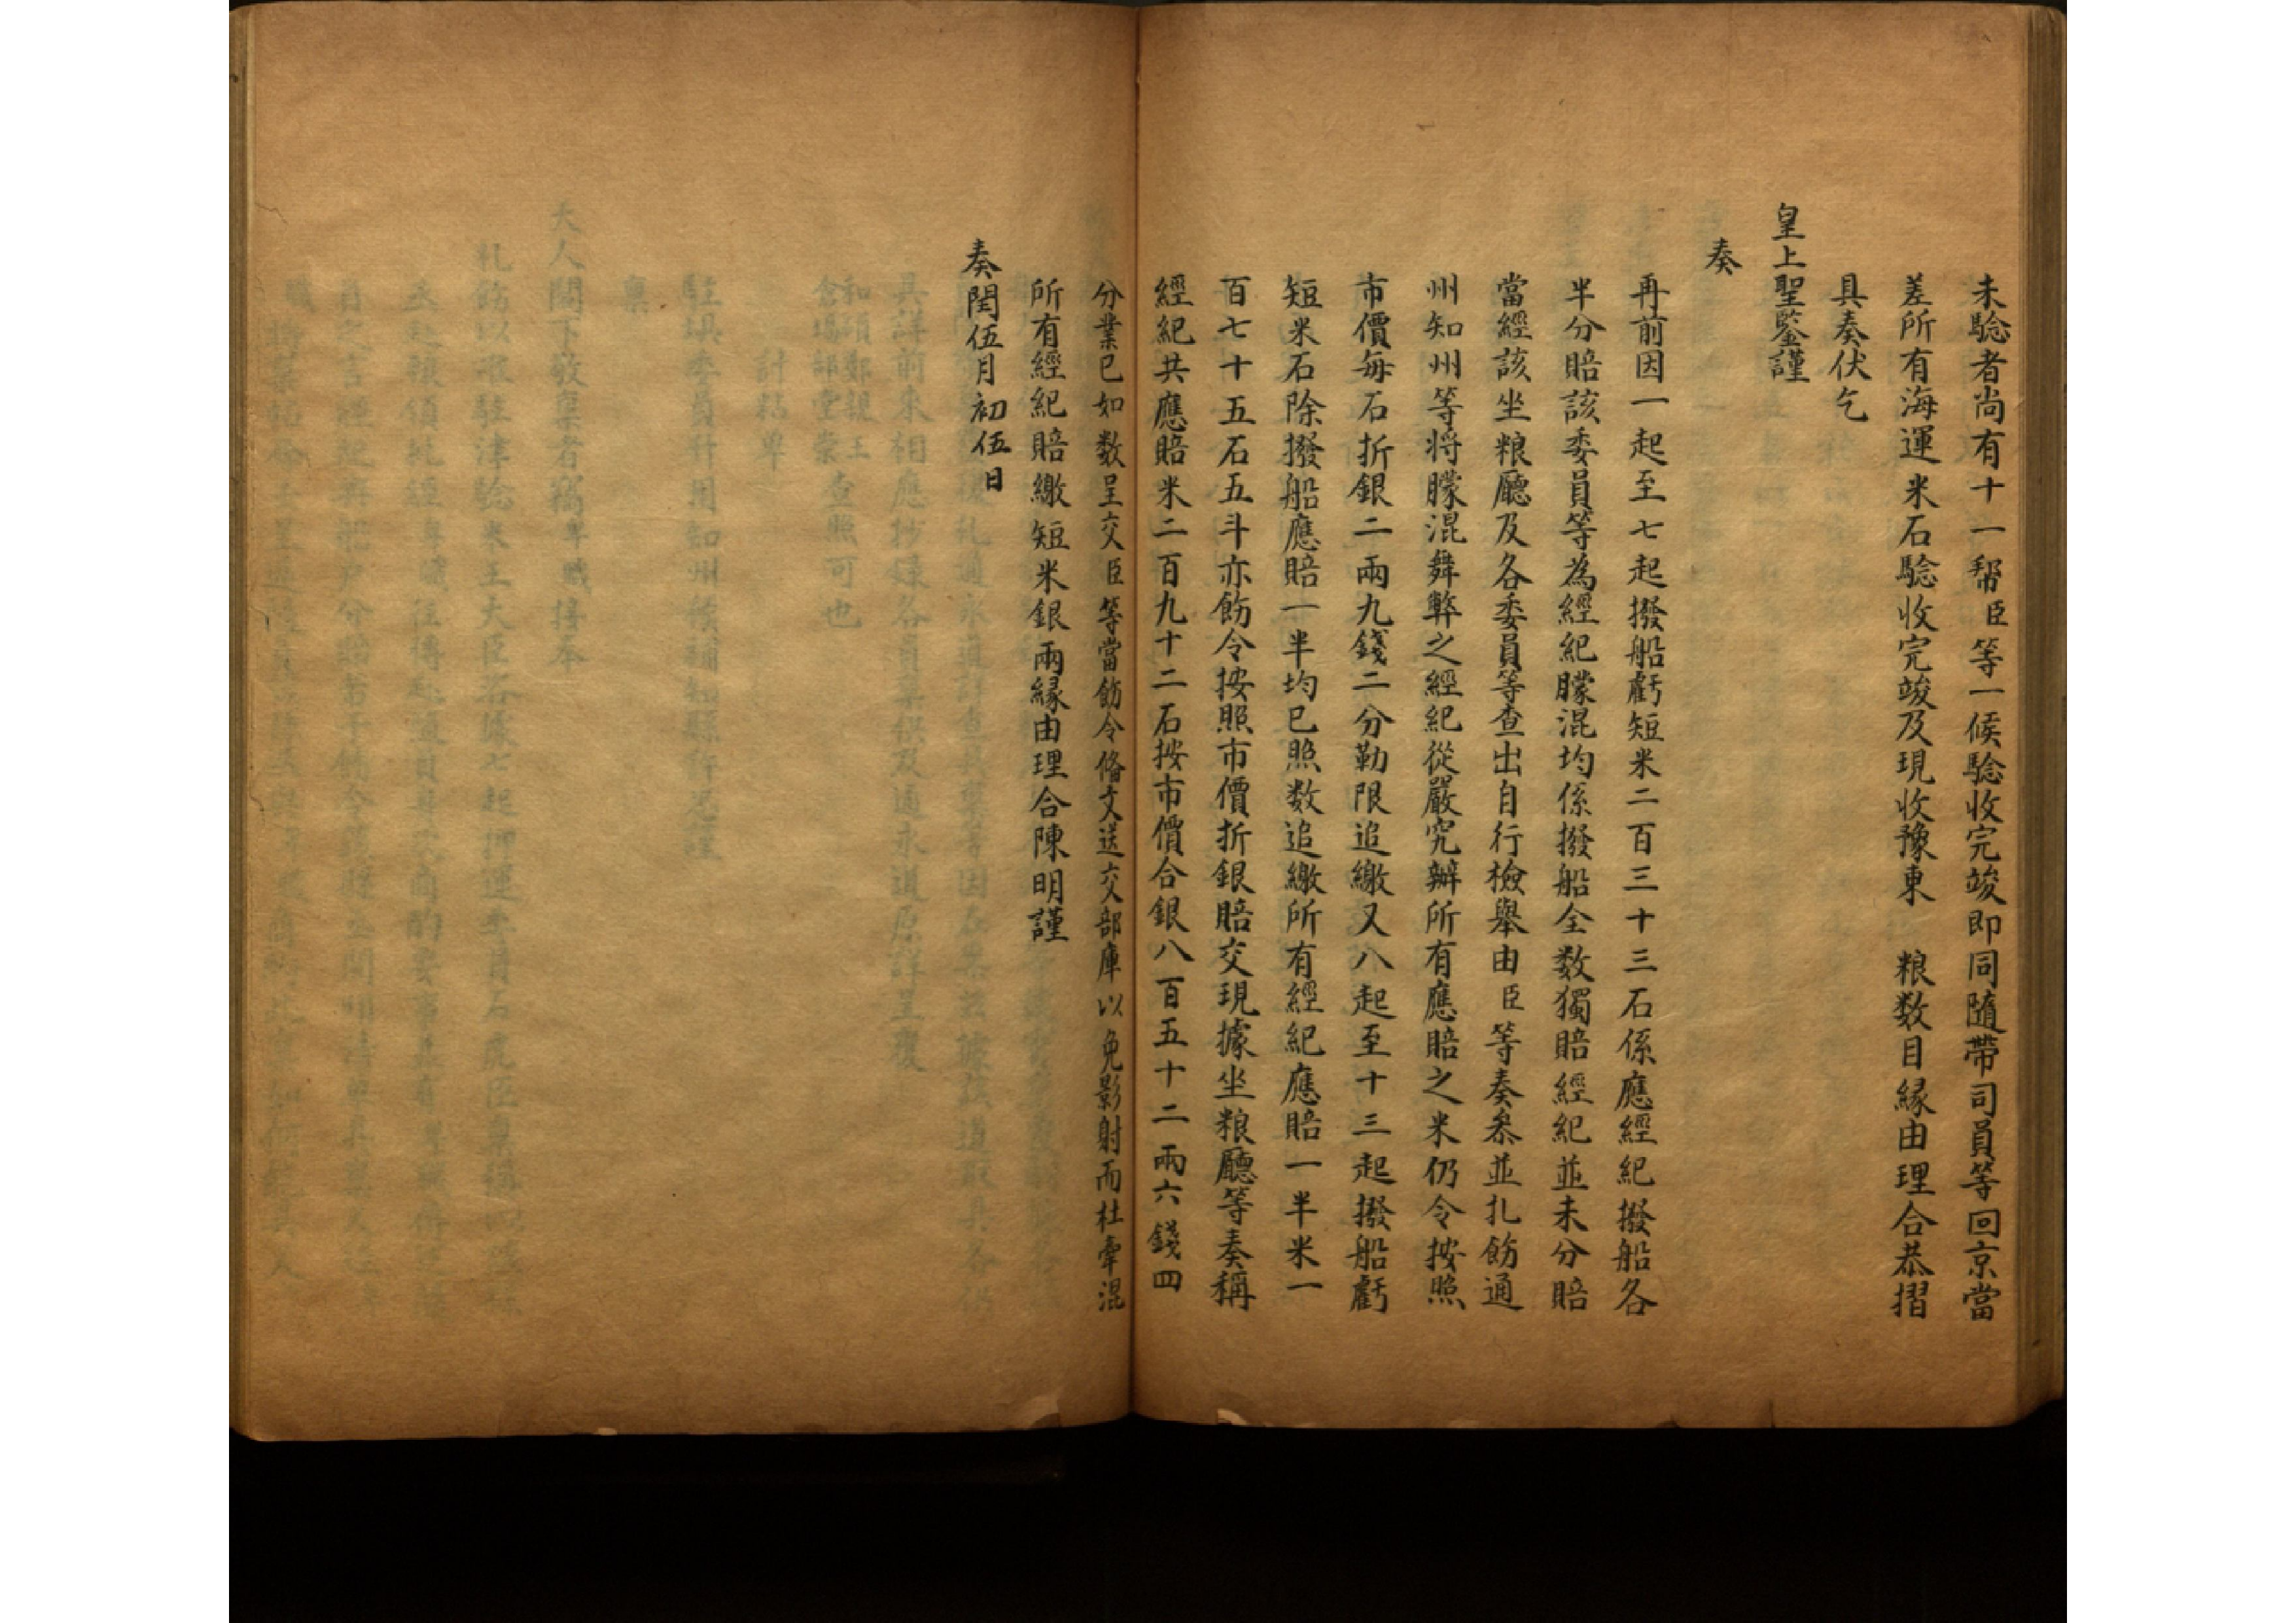 未驗者尚有十一幫臣等一候驗收完竣即同隨帶司員等回京當
差所有海運米石驗收完竣及現收豫東　粮数目縁由理合恭摺
具奏伏乞
皇上聖鑒謹
奏
再前因一起至七起撥船虧短米二百三十三石係應經紀撥船各
半分賠該委員等為經紀朦混均係撥船全数獨賠經紀並未分賠
當經該坐粮廳及各委員等查出自行檢舉由臣等奏叅並扎飭通
州知州等将朦混舞弊之經紀從嚴究辦所有應賠之米仍令按照
市價每石折銀二兩九錢二分勒限追繳又八起至十三起撥船虧
短米石除撥船應賠一半均已照数追繳所有經紀應賠一半米一
百七十五石五斗亦飭令按照市價折銀賠交現據坐粮廳等奏稱
經紀共應賠米二百九十二石按市價合銀八百五十二兩六錢四
分業已如数呈交臣等當飭令俻文送交部庫以免影射而杜牽混
所有經紀賠繳短米銀兩縁由理合陳明謹
奏閏伍月初伍日